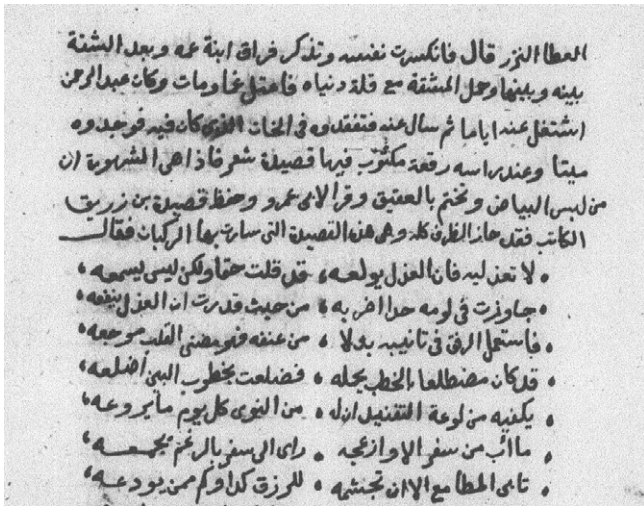 العطا النزر قال فانكسرت نفسه وتذكر فراق ابنة عمه وبعد الشقة
بينه وبينها وحمل المشقة مع قلة دنياه فاعتل غما ومات وكان عبد الرحمن
اشتغل عنه اياما ثم سال عنه فتفقدوه في الخان الذي كان فيه فوجدوه
ميتا وعند راسه رقعة مكتوب فيها قصيدة شعر فاذا هي المشهورة ان
من لبس البياض وتختم بالعقيق وقرا لابي عمرو وحفظ قصيدة بن زريق
الكاتب فقد حاز الظرف كله وهي هذه القصيدة التي سارت بها الركبان فقال
لا تعذليه فان العذل يولعه ، قد قلت حقا ولكن ليس يسمعه ،
جاوزت في لومه حدا اضر به ، من حيث قدرت ان العذل ينفعه ،
فاستعملي الرفق في تانيبه بدلا ، من عنفه فهو مضنى القلب موجعه ،
قد كان مضطلعا بالخطب يحمله ، فضلعت بخطوب البين أضلعه ،
يكفيه من لوعة التفنيد ان له ، من النوى كل يوم ما يروعه ،
ما آب من سفر الا وازعجه ، راى الى سفر بالرغم يجمعه ،
تابى المطامع الا ان تجشمه ، للرزق كدا وكم ممن يودعه ،